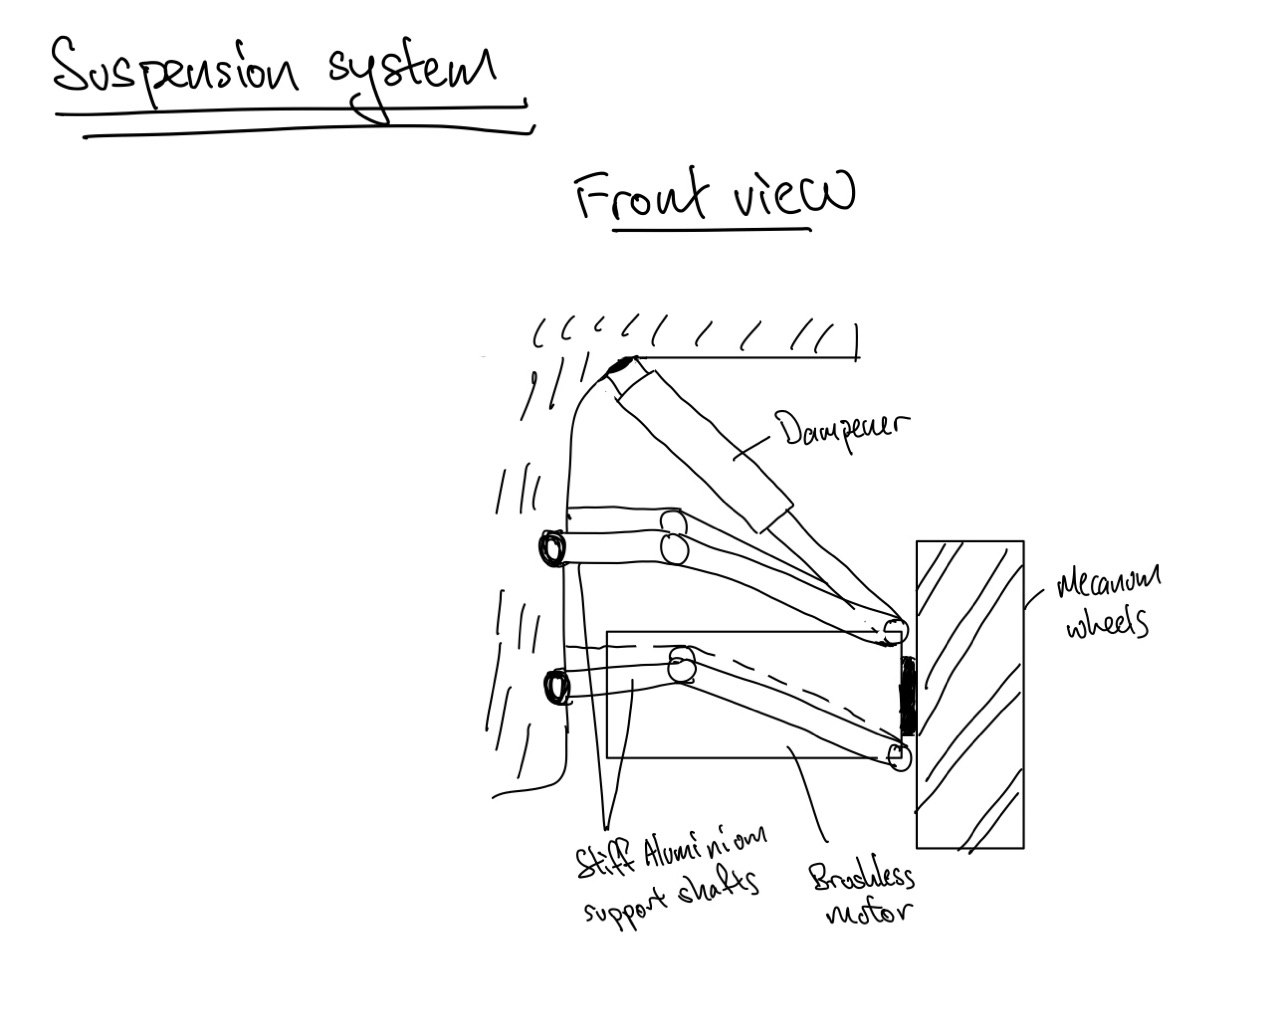 Suspension system
Front view
Dampener
Mecanum
wheels
Stiff Aluminium
support shafts
Brushless
motor